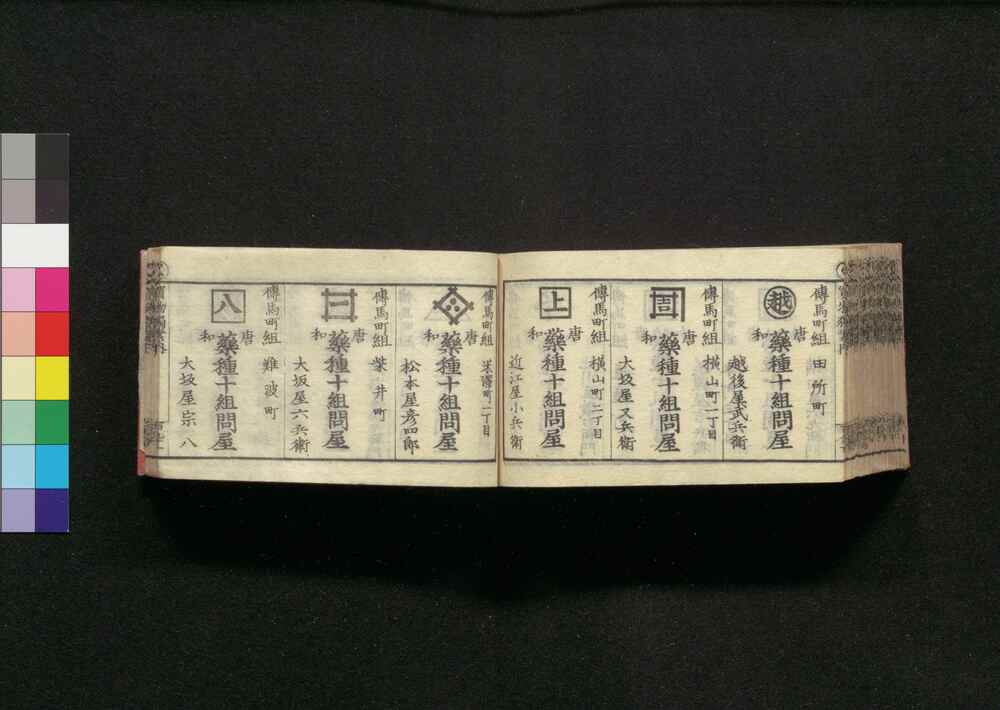 傳馬町組 田所町
越
唐和 藥種十組問屋
越後屋武兵衛
傳馬町組 横山町一丁目
吉
唐和 藥種十組問屋
大坂屋又兵衛
傳馬町組 横山町二丁目
上
唐和 藥種十組問屋
近江屋小兵衛
傳馬町組 米澤町一丁目
唐和 藥種十組問屋
松本屋彦四郎
傳馬町組 葉井町
唐和 藥種十組問屋
大坂屋六兵衛
傳馬町組 難波町
八
唐和 藥種十組問屋
大坂屋宗八